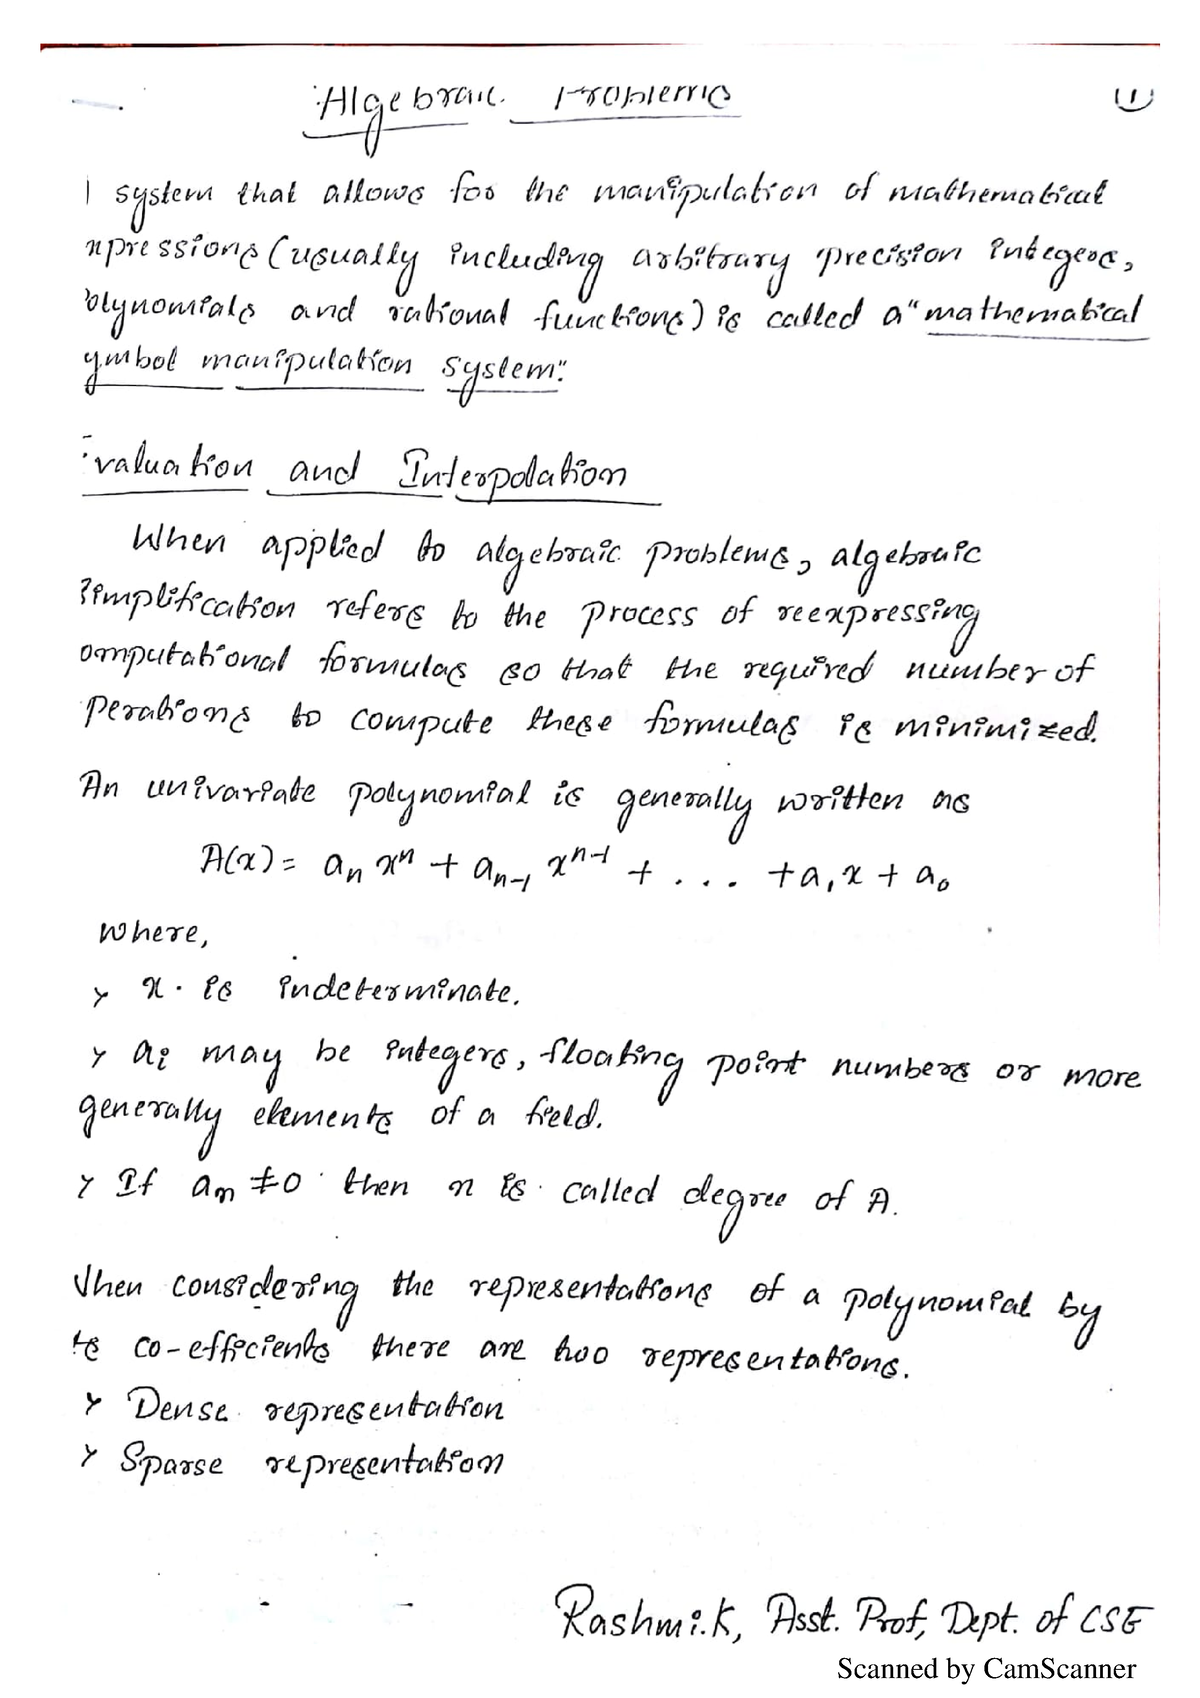 Algebraic Problems 1
A system that allows for the manipulation of mathematical
xpressions (usually including arbitrary precision integers,
olynomials and rational functions) is called a "mathematical
ymbol manipulation system".
Evaluation and Interpolation
When applied to algebraic problems, algebraic
simplification refers to the process of reexpressing
omputational formulas so that the required number of
perations to compute these formulas is minimized.
An univariate polynomial is generally written as
A(x) = aₙ xⁿ + aₙ₋₁ xⁿ⁻¹ + . . . + a₁x + a₀
where,
> x is indeterminate.
> aᵢ may be integers, floating point numbers or more
generally elements of a field.
> If aₙ ≠ 0 then n is called degree of A.
When considering the representations of a polynomial by
its co-efficients there are two representations.
> Dense representation
> Sparse representation
Rashmi.K, Asst. Prof, Dept. of CSE
Scanned by CamScanner